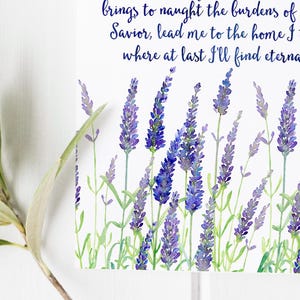 brings to naught the burdens of
Savior, lead me to the home I
where at last I'll find eterna